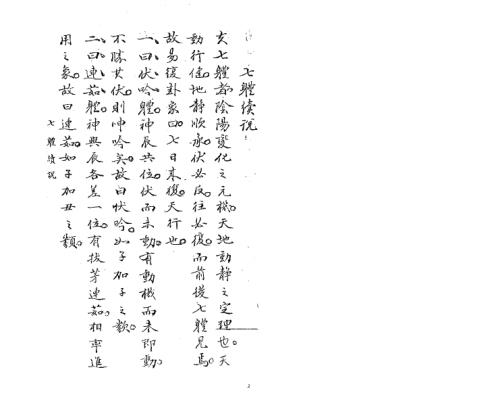 七體續說：
夫七體者陰陽變化之元機。天地動靜之定理也。天
動行健。地靜順承。伏必反。往必復。而前後七體見焉。
故易復卦彖曰。七日來復。天行也。
一、曰伏吟體。神辰共位。伏而未動。有動機而未即動。
不勝其伏。則呻吟矣。故曰伏吟。如子加子之類。
二、曰連茹體。神與辰各差一位。有拔茅連茹。相率進
用之象。故曰連茹。如子加丑之類。
七體續說
2